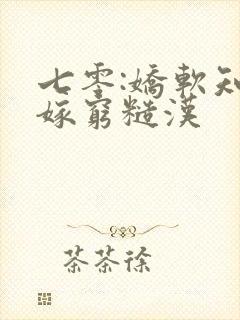 七零:嬌軟知
嫁窮糙漢
茶茶徐